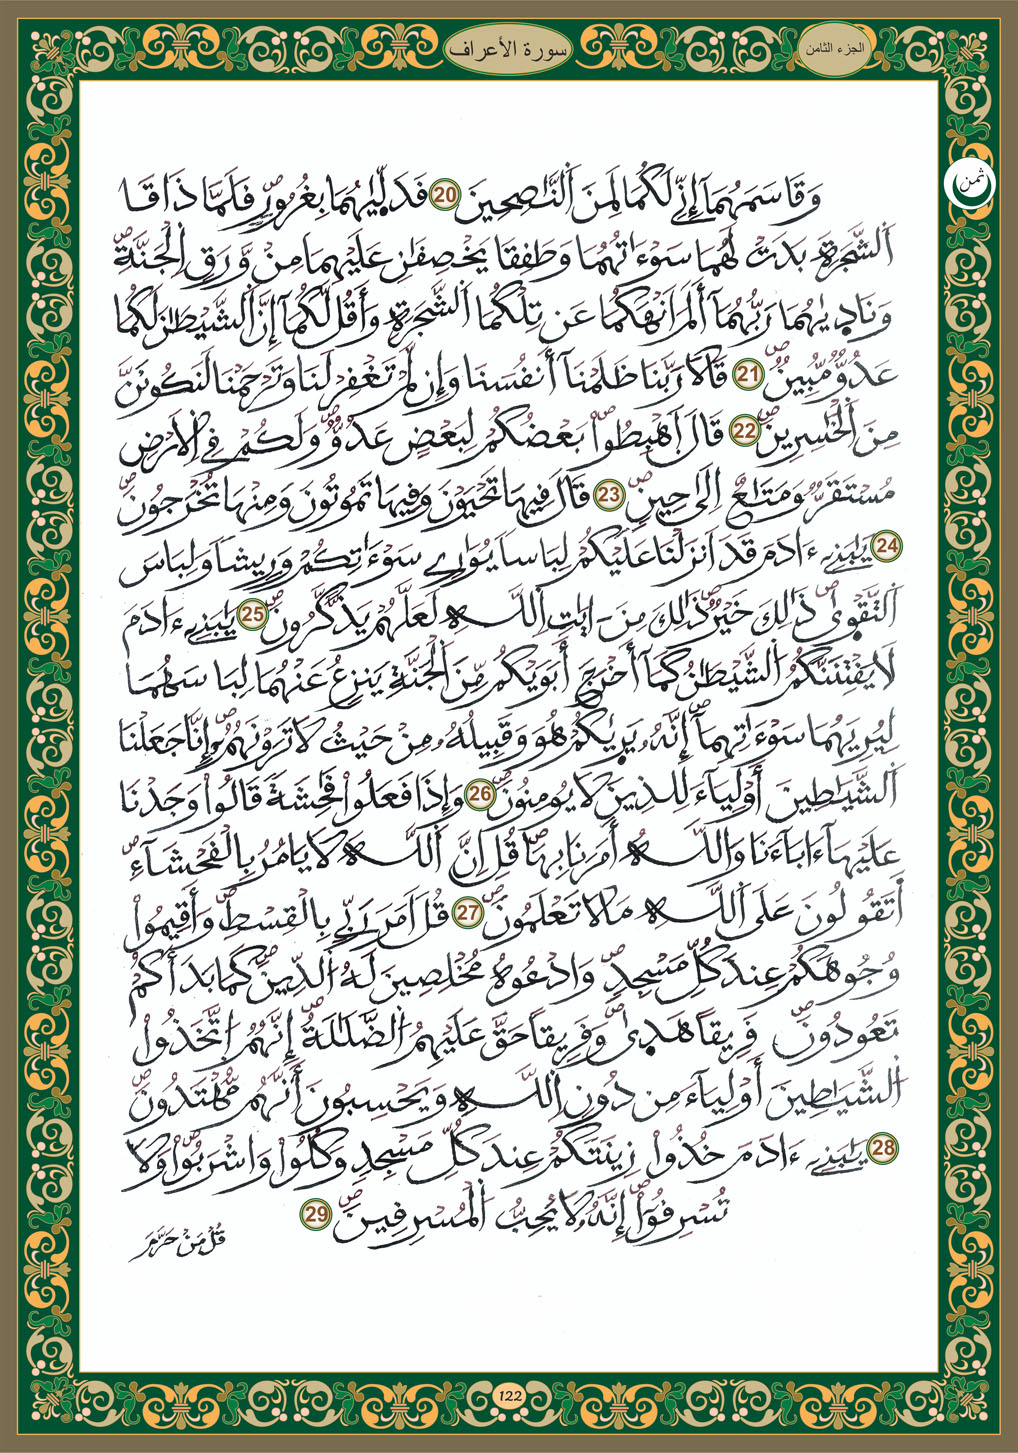 سورة الأعراف
الجزء الثامن
ثمن
وَقَاسَمَهُمَآ إِنِّے لَكُمَا لَمِنَ اَ۬لنَّٰصِحِينَۖ 20 فَدَلّ۪يٰهُمَا بِغُرُورٖۖ فَلَمَّا ذَاقَا
اَ۬لشَّجَرَةَ بَدَتْ لَهُمَا سَوْءَٰتُهُمَا وَطَفِقَا يَخْصِفَٰنِ عَلَيْهِمَا مِنْ وَّرَقِ اِ۬لْجَنَّةِۖ
وَنَاد۪يٰهُمَا رَبُّهُمَآ أَلَمَ اَنْهَكُمَا عَن تِلْكُمَا اَ۬لشَّجَرَةِ وَأَقُل لَّكُمَآ إِنَّ اَ۬لشَّيْطَٰنَ لَكُمَا
عَدُوّٞ مُّبِينٞۖ 21 قَالَا رَبَّنَا ظَلَمْنَآ أَنفُسَنَا وَإِن لَّمْ تَغْفِرْ لَنَا وَتَرْحَمْنَا لَنَكُونَنَّ
مِنَ اَ۬لْخَٰسِرِينَۖ 22 قَالَ اَ۪هْبِطُواْۖ بَعْضُكُمْ لِبَعْضٍ عَدُوّٞۖ وَلَكُمْ فِے اِ۬لَارْضِ
مُسْتَقَرّٞ وَمَتَٰعٌ اِلَىٰ حِينٖۖ 23 قَالَ فِيهَا تَحْيَوْنَ وَفِيهَا تَمُوتُونَ وَمِنْهَا تُخْرَجُونَۖ
24 يَٰبَنِےٓ ءَادَمَ قَدَ اَنزَلْنَا عَلَيْكُمْ لِبَاساٗ يُوَٰرِے سَوْءَٰتِكُمْ وَرِيشاٗ وَلِبَاسَ
اَ۬لتَّقْو۪ىٰۖ ذَٰلِكَ خَيْرٞۖ ذَٰلِكَ مِنَ ـ اٰيَٰتِ اِ۬للَّهِ لَعَلَّهُمْ يَذَّكَّرُونَۖ 25 يَٰبَنِےٓ ءَادَمَ
لَا يَفْتِنَنَّكُمُ اُ۬لشَّيْطَٰنُ كَمَآ أَخْرَجَ أَبَوَيْكُم مِّنَ اَ۬لْجَنَّةِ يَنزِعُ عَنْهُمَا لِبَاسَهُمَا
لِيُرِيَهُمَا سَوْءَٰتِهِمَآۖ إِنَّهُۥ يَر۪يٰكُمْ هُوَ وَقَبِيلُهُۥ مِنْ حَيْثُ لَا تَرَوْنَهُمُۥٓۖ إِنَّا جَعَلْنَا
اَ۬لشَّيَٰطِينَ أَوْلِيَآءَ لِلذِينَ لَا يُومِنُونَۖ 26 وَإِذَا فَعَلُواْ فَٰحِشَةٗ قَالُواْ وَجَدْنَا
عَلَيْهَآ ءَابَآءَنَا وَاللَّهُ أَمَرَنَا بِهَاۖ قُلِ اِنَّ اَ۬للَّهَ لَا يَامُرُ بِالْفَحْشَآءِۖ
اَتَقُولُونَ عَلَى اَ۬للَّهِ مَا لَا تَعْلَمُونَۖ 27 قُلَ اَمَرَ رَبِّے بِالْقِسْطِۖ وَأَقِيمُواْ
وُجُوهَكُمْ عِندَ كُلِّ مَسْجِدٖۖ وَادْعُوهُ مُخْلِصِينَ لَهُ اُ۬لدِّينَۖ كَمَا بَدَأَكُمْ
تَعُودُونَۖ فَرِيقاً هَد۪ىٰۖ وَفَرِيقاً حَقَّ عَلَيْهِمُ اُ۬لضَّلَٰلَةُۖ إِنَّهُمُ اُ۪تَّخَذُواْ
اُ۬لشَّيَٰطِينَ أَوْلِيَآءَ مِن دُونِ اِ۬للَّهِ وَيَحْسِبُونَ أَنَّهُم مُّهْتَدُونَۖ
28 يَٰبَنِےٓ ءَادَمَ خُذُواْ زِينَتَكُمْ عِندَ كُلِّ مَسْجِدٖ وَكُلُواْ وَاشْرَبُواْ وَلَا
تُسْرِفُوٓاْۖ إِنَّهُۥ لَا يُحِبُّ اُ۬لْمُسْرِفِينَۖ 29
قُلْ مَنْ حَرَّمَ
122